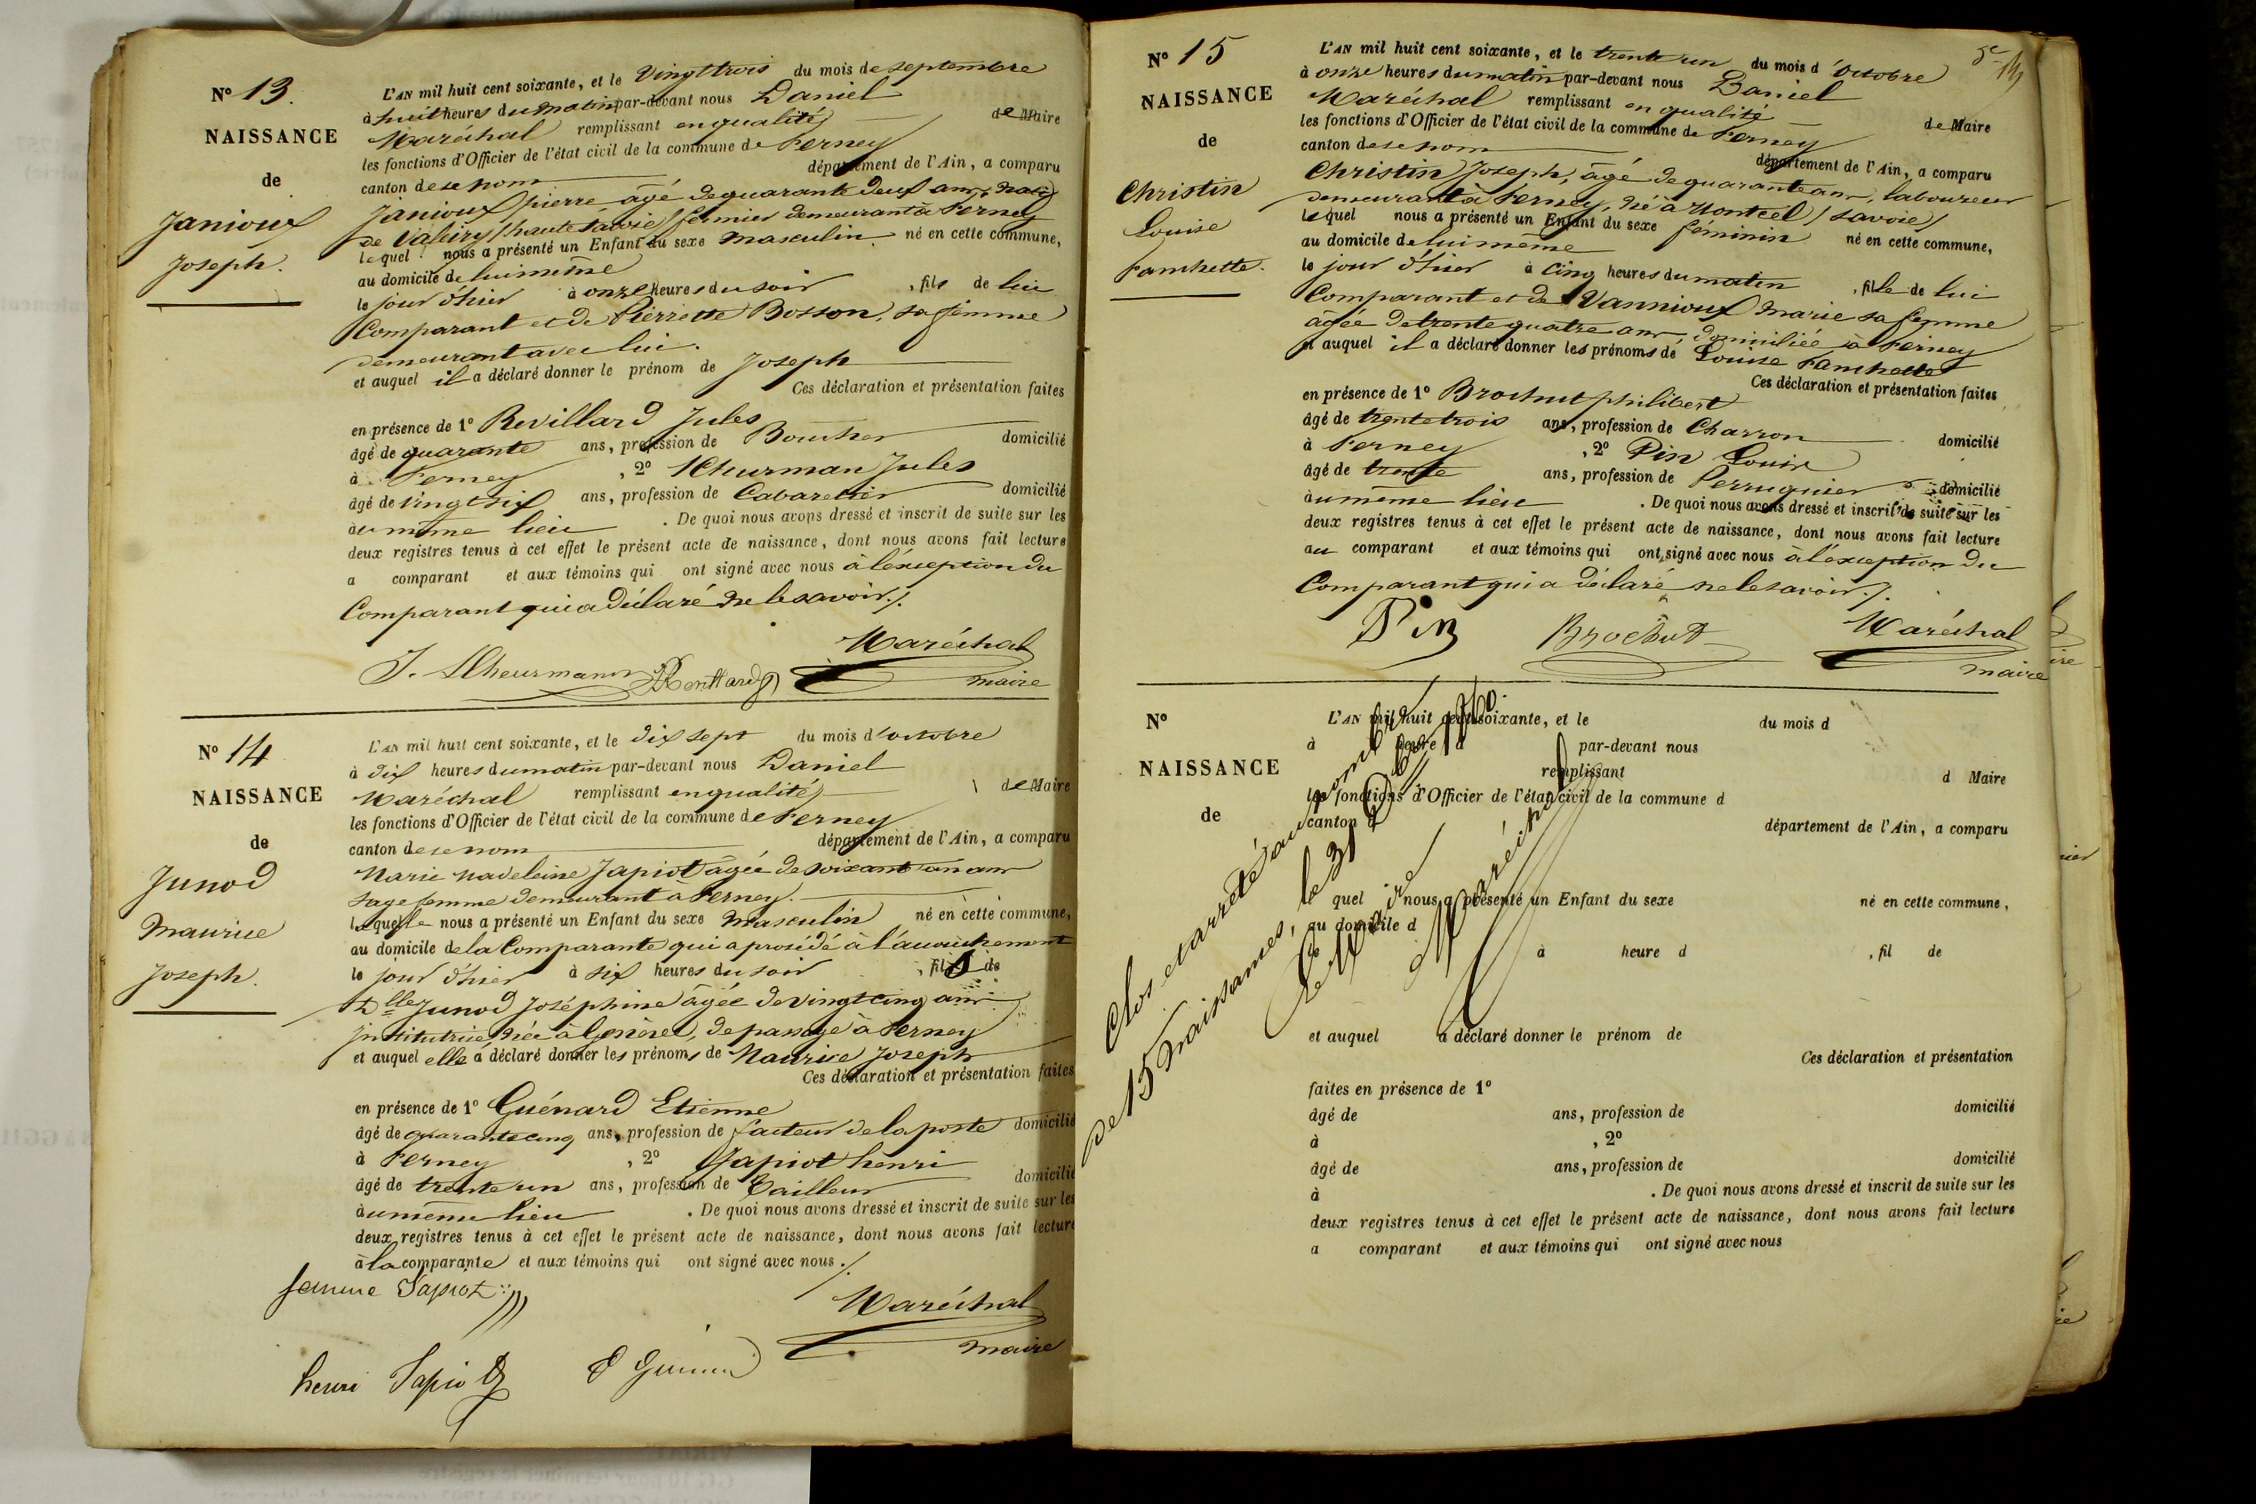 N° 13.
NAISSANCE
de
Janioux
Joseph.
L'AN mil huit cent soixante, et le vingt trois du mois de septembre
à huit heures du matin par-devant nous Daniel
Maréchal remplissant en qualité de Maire
les fonctions d'Officier de l'état civil de la commune de Ferney
canton de ce nom département de l'Ain, a comparu
Janioux pierre âgé de quarante deux ans, natif
de Valeiry (haute Savoie) fermier demeurant à Ferney
lequel nous a présenté un Enfant du sexe masculin né en cette commune,
au domicile de lui même
le jour d'hier à onze heures du soir , fils de lui
Comparant et de Pierrette Bosson, sa femme
demeurant avec lui.
et auquel il a déclaré donner le prénom de Joseph
Ces déclaration et présentation faites
en présence de 1° Revillard Jules
âgé de quarante ans, profession de Boucher domicilié
à Ferney , 2° Scheurman Jules
âgé de vingt six ans, profession de Cabaretier domicilié
au même lieu . De quoi nous avons dressé et inscrit de suite sur les
deux registres tenus à cet effet le présent acte de naissance, dont nous avons fait lecture
a comparant et aux témoins qui ont signé avec nous à l'exception du
Comparant qui a déclaré ne le savoir./.
Maréchal
J. Scheurmann
maire
N° 14
NAISSANCE
de
Junod
Maurice
Joseph.
L'AN mil huit cent soixante, et le dix sept du mois d'octobre
à dix heures du matin par-devant nous Daniel
Maréchal remplissant en qualité de Maire
les fonctions d'Officier de l'état civil de la commune de Ferney
canton de ce nom département de l'Ain, a comparu
Marie Madeleine Japiot âgée de soixante un ans
sage femme demeurant à Ferney.
laquelle nous a présenté un Enfant du sexe masculin né en cette commune,
au domicile de la Comparante qui a procédé à l'accouchement
le jour d'hier à six heures du soir , fils de
Dlle Junod Joséphine âgée de vingt cinq ans
institutrice née à , de passage à Ferney
et auquel elle a déclaré donner les prénoms de Maurice Joseph
Ces déclaration et présentation faites
en présence de 1° Guénard Etienne
âgé de quarante cinq ans, profession de facteur de la poste domicilié
à Ferney , 2° Japiot henri
âgé de trente un ans, profession de Tailleur domicilié
au même lieu . De quoi nous avons dressé et inscrit de suite sur les
deux registres tenus à cet effet le présent acte de naissance, dont nous avons fait lecture
à la comparante et aux témoins qui ont signé avec nous ./.
femme Japiot
Maréchal
maire
henri Japiot
N° 15
NAISSANCE
de
Christin
Louise
Fanchette.
L'AN mil huit cent soixante, et le trente un du mois d'octobre
à onze heures du matin par-devant nous Daniel
Maréchal remplissant en qualité de Maire
les fonctions d'Officier de l'état civil de la commune de Ferney
canton de ce nom département de l'Ain, a comparu
Christin Joseph, âgé de quarante ans, laboureur
demeurant à Ferney, né à Montcel (savoie)
lequel nous a présenté un Enfant du sexe feminin né en cette commune,
au domicile de lui même
le jour d'hier à cinq heures du matin , fille de lui
Comparant et de Vannioux Marie sa femme
âgée de trente quatre ans, domiciliée à Ferney
et auquel il a déclaré donner les prénoms de Louise Fanchette
Ces déclaration et présentation faites
en présence de 1° Brochut philibert
âgé de trente trois ans, profession de Charron domicilié
à Ferney , 2° Pin Louis
âgé de trente ans, profession de Perruquier domicilié
au même lieu . De quoi nous avons dressé et inscrit de suite sur les
deux registres tenus à cet effet le présent acte de naissance, dont nous avons fait lecture
au comparant et aux témoins qui ont signé avec nous à l'exception du
Comparant qui a déclaré ne le savoir./.
Pin Brochut Maréchal
maire
N°
NAISSANCE
de
L'AN mil huit cent soixante, et le du mois d
à heure d par-devant nous
remplissant d Maire
les fonctions d'Officier de l'état civil de la commune d
canton d département de l'Ain, a comparu
quel nous a présenté un Enfant du sexe né en cette commune,
au domicile d
le à heure d , fil de
et auquel a déclaré donner le prénom de
Ces déclaration et présentation
faites en présence de 1°
âgé de ans, profession de domicilié
à , 2°
âgé de ans, profession de domicilié
à . De quoi nous avons dressé et inscrit de suite sur les
deux registres tenus à cet effet le présent acte de naissance, dont nous avons fait lecture
a comparant et aux témoins qui ont signé avec nous
Clos et arrêté au nombre
de 15 naissances, le 31 Xbre 1860.
Le Maire
Maréchal